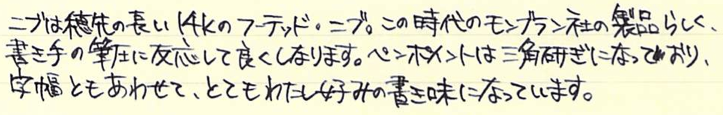 ニブは穂先の長い14Kのフーテッド・ニブ。この時代のモンブラン社の製品らしく、
書き手の筆圧に反応して良くしなります。ペンポイントは三角研ぎになっており、
字幅ともあわせて、とてもわたし好みの書き味になっています。